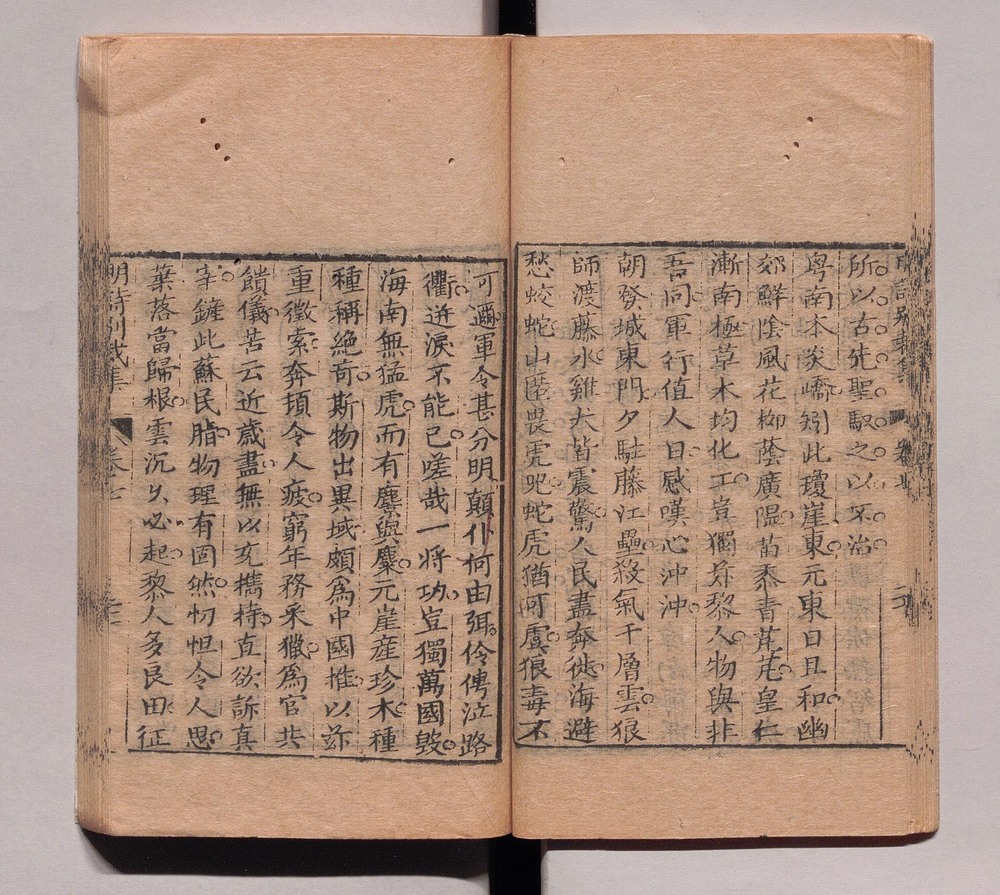 所以古先聖馭之以不治
粵南本炎嶠矧此瓊崖東元東日且和幽
郊鮮陰風花柳蔭廣隰苗黍青芃芃皇仁
漸南極草木均化工豈獨茲黎人物與非
吾同軍行值人日感嘆心沖沖
朝發城東門夕駐藤江壘殺氣千層雲狼
師渡藤水雞犬皆震驚人民盡奔徙海避
愁蛟蛇山匿畏虎兕蛇虎猶可虞狼毒不
可邇軍令甚分明顛仆何由弭伶俜泣路
衢迸淚不能已嗟哉一將功豈獨萬國毀
海南無猛虎而有麖與麋元崖產珍木種
種稱絕奇斯物出異域頗為中國推以茲
重徵索奔頓令人疲窮年務采獵為官共
饋儀苦云近歲盡無以充攜持直欲訴真
宰鏟此蘇民脂物理有固然忉怛令人思
葉落當歸根雲沉久必起黎人多良田征
明詩別裁集 卷七